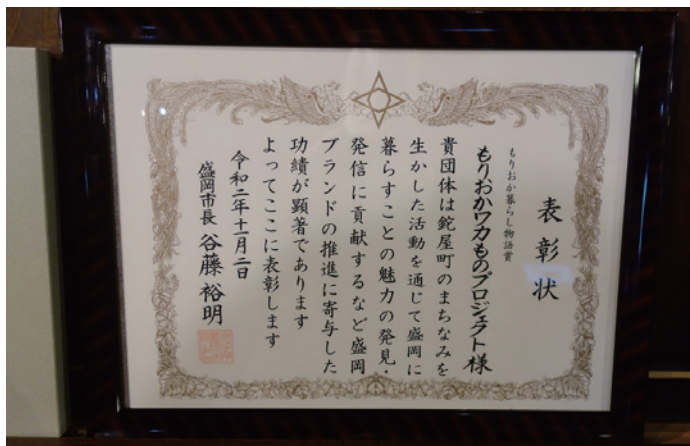 表彰状
もりおか暮らし物語賞
もりおかワカものプロジェクト様
貴団体は鉈屋町のまちなみを
生かした活動を通じて盛岡に
暮らすことの魅力の発見・
発信に貢献するなど盛岡
ブランドの推進に寄与した
功績が顕著であります
よってここに表彰します
令和二年十一月二日
盛岡市長 谷藤裕明